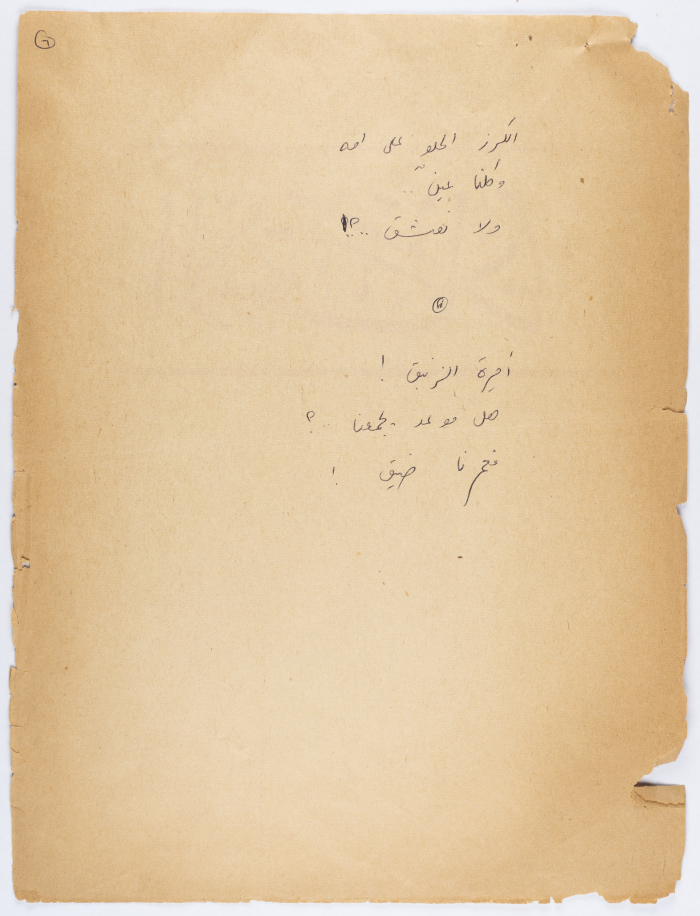 ٦
الكرز الحلو على امه
وكلنا عين ..
ولا نعشق ..؟!
أميرة الزنبق !
هل موعد يجمعنا ..؟
فعمرنا ضيق !